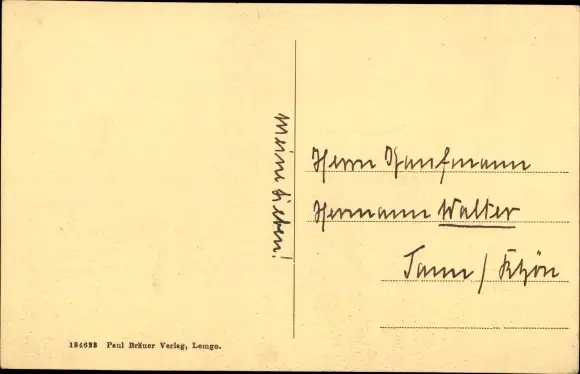 Meine Lieben!
Herrn Kaufmann
Hermann Walter
Tann/Rhön
184623 Paul Bräuer Verlag, Lemgo.